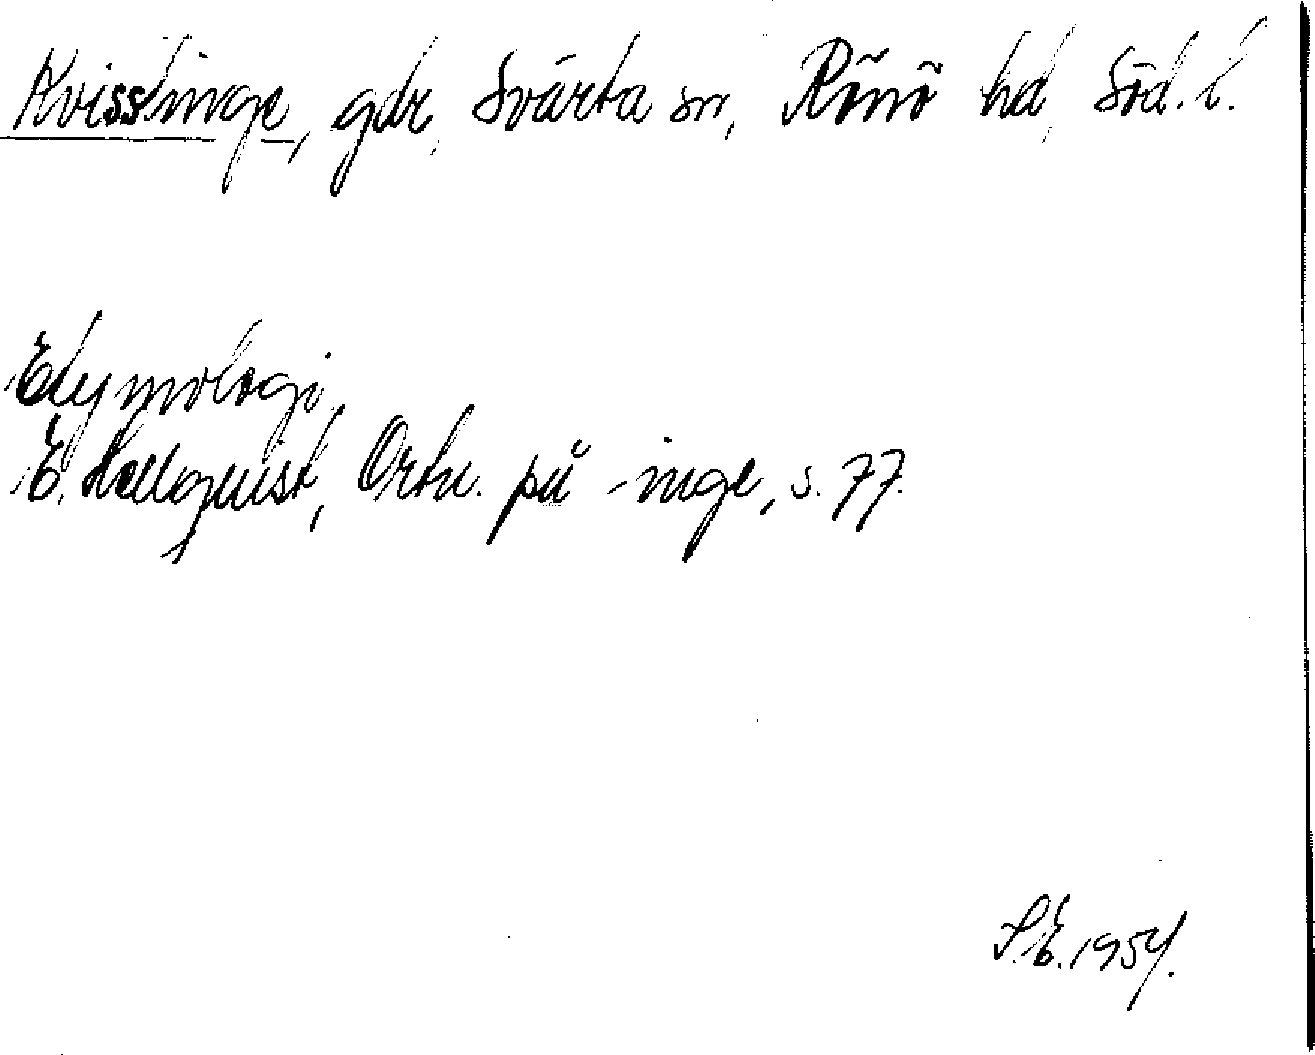 Kvisslinge, gdr, Svärta sn, Rönö hd, Söd. l.
Etymologi
E. Hellquist, Ortn. på -inge, s. 77.
S.E. 1954.